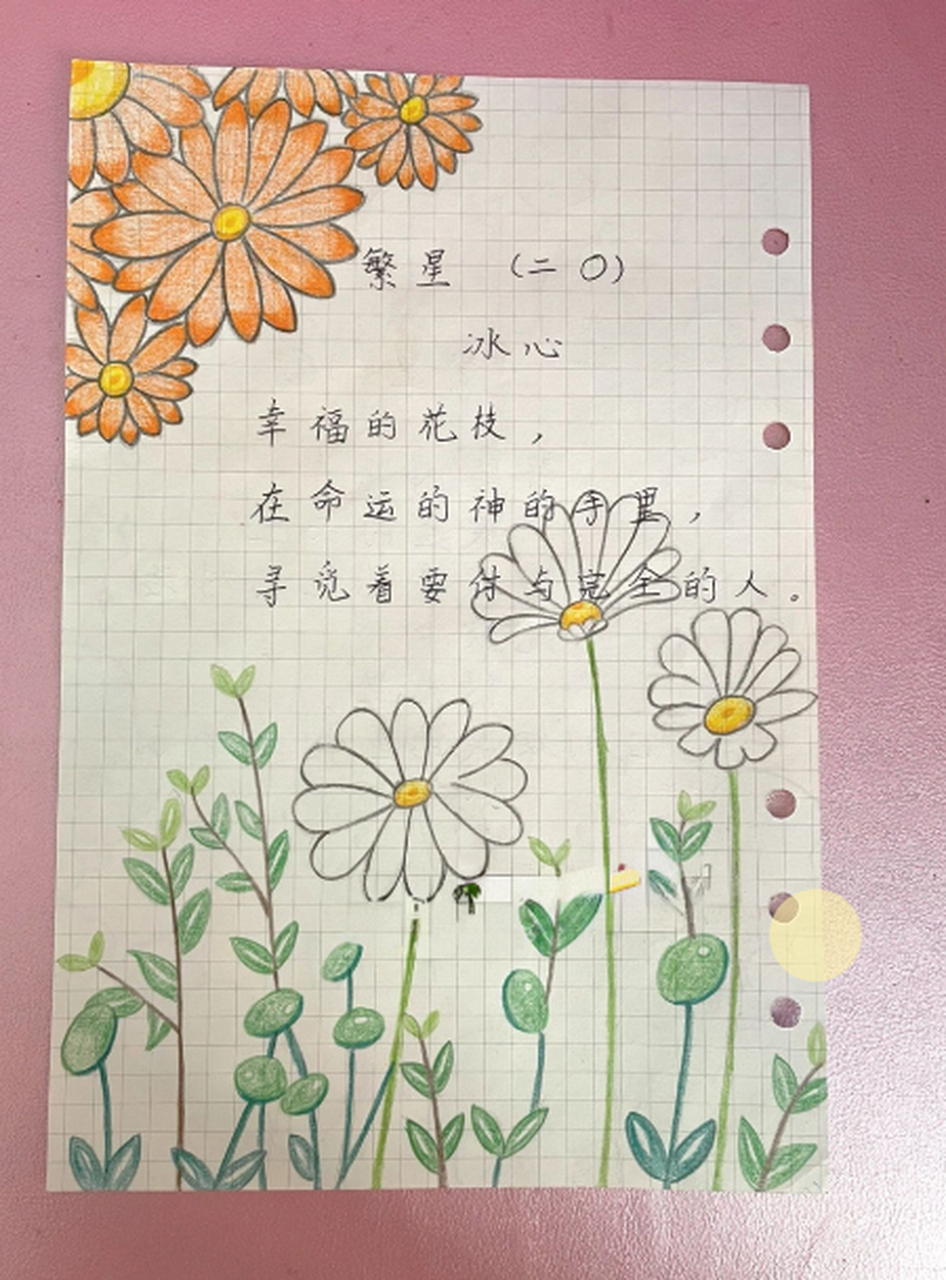 繁星 (二〇)
冰心
幸福的花枝,
在命运的神的手里,
寻觅着要付与完全的人。